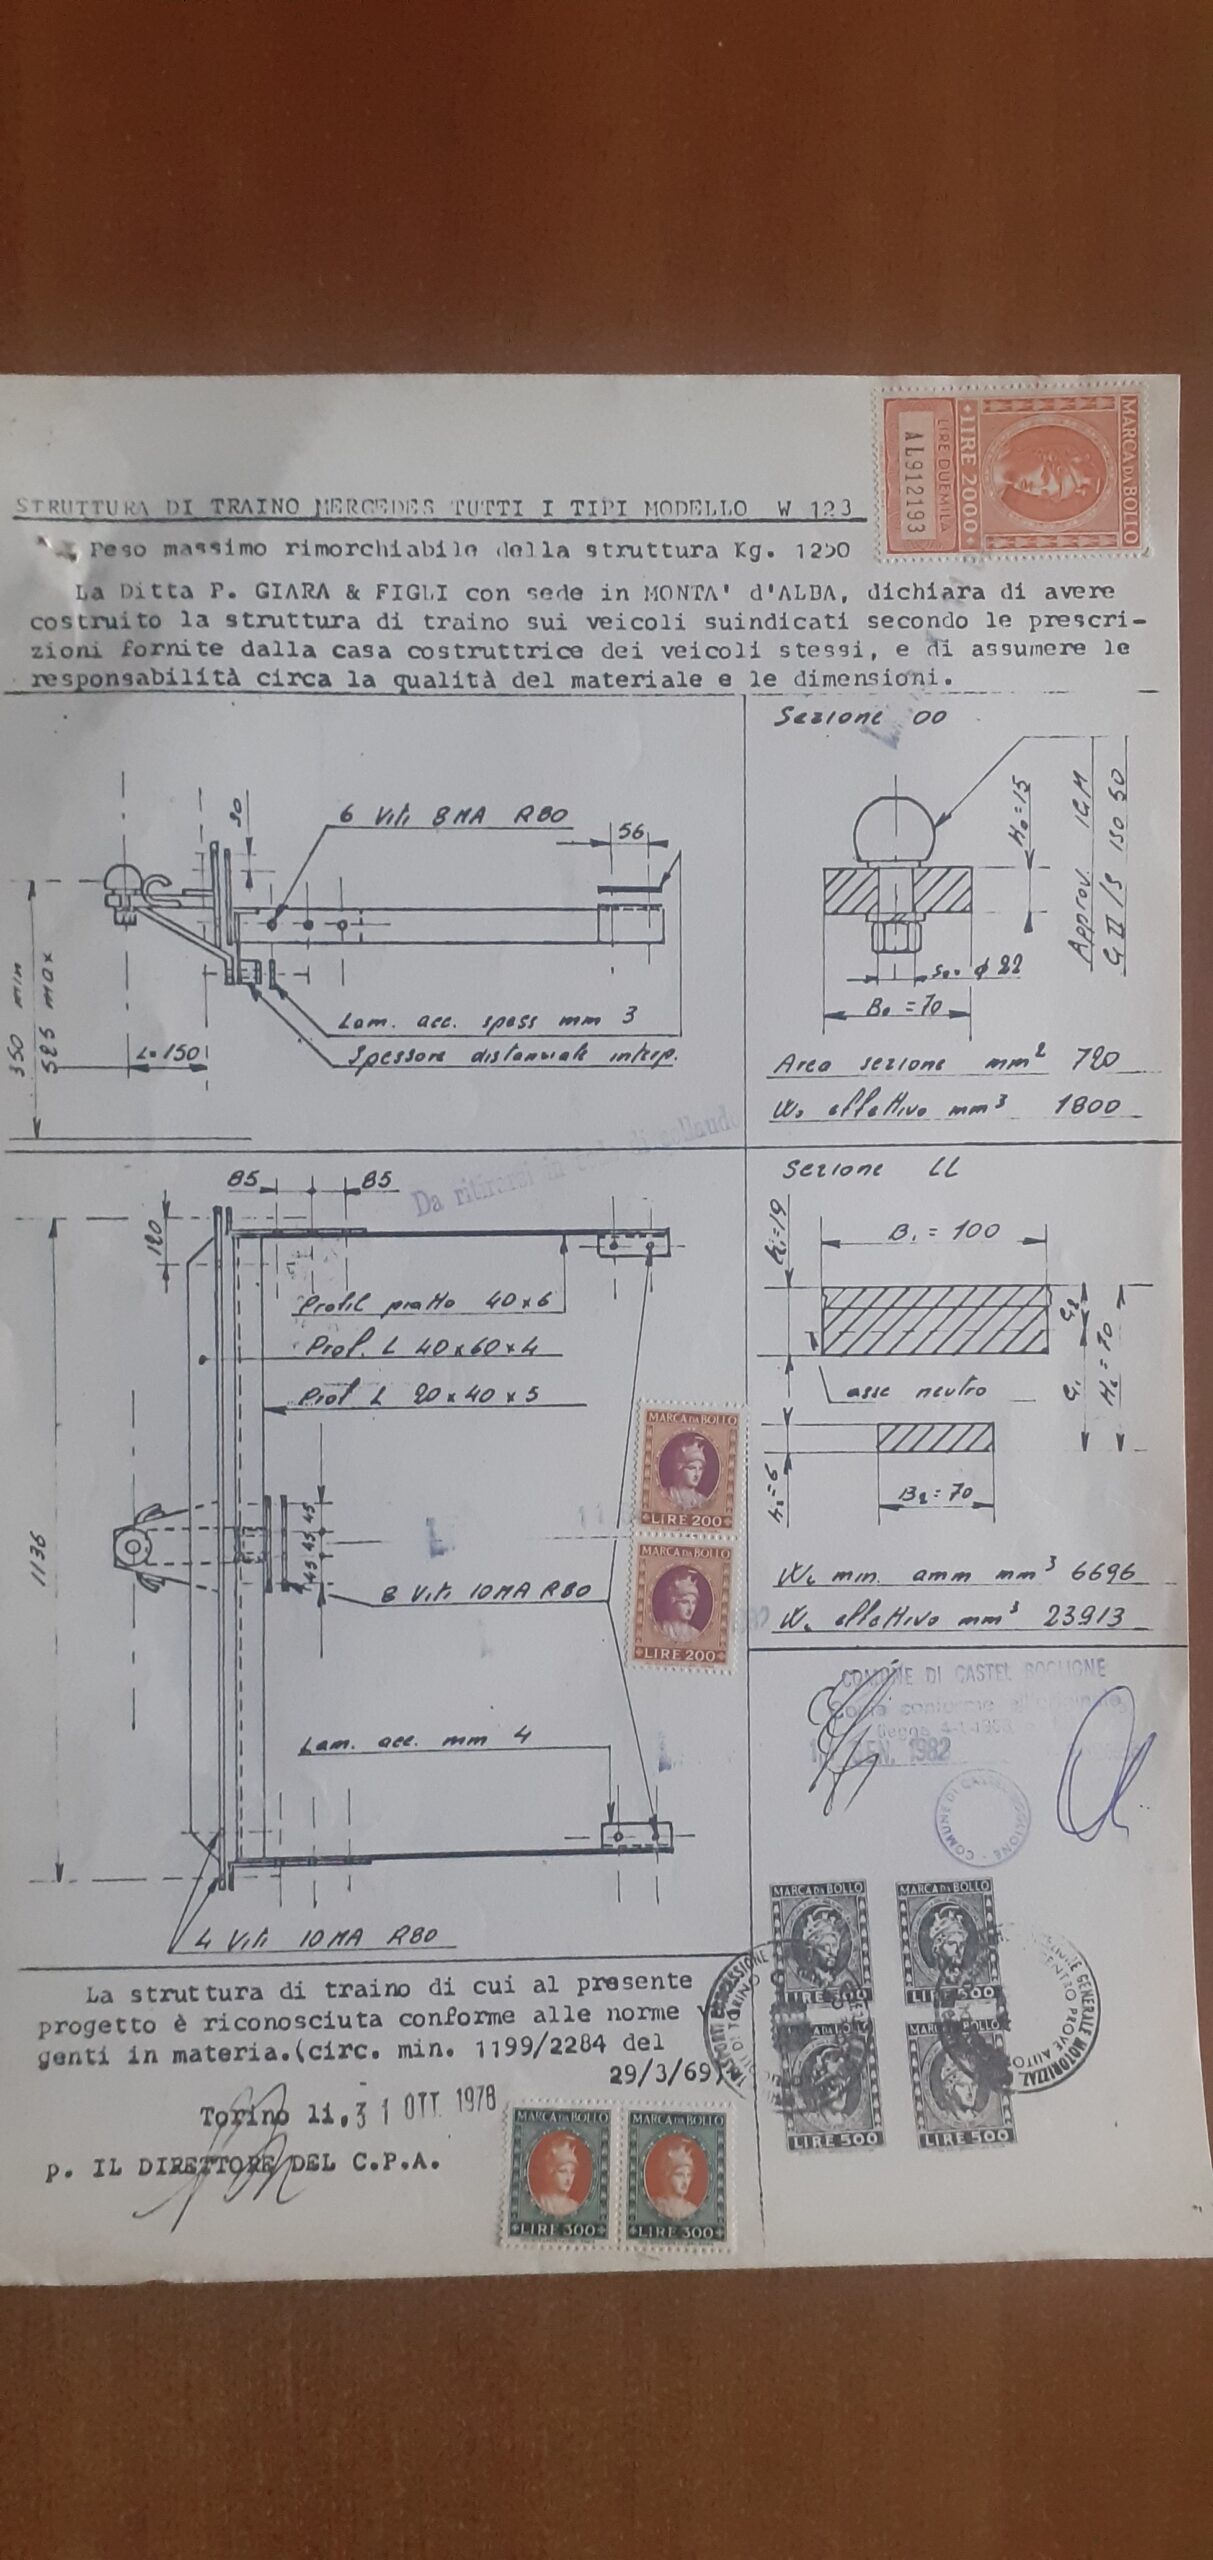 MARCA DA BOLLO
LIRE 2000
LIRE DUEMILA
AL912193
STRUTTURA DI TRAINO MERCEDES TUTTI I TIPI MODELLO W 123
Peso massimo rimorchiabile della struttura Kg. 1250
La Ditta P. GIARA & FIGLI con sede in MONTA' d'ALBA, dichiara di avere
costruito la struttura di traino sui veicoli suindicati secondo le prescri-
zioni fornite dalla casa costruttrice dei veicoli stessi, e di assumere le
responsabilità circa la qualità del materiale e le dimensioni.
6 Viti 8MA R80
30
56
350 min
525 max
L=150
Lam. acc. spess mm 3
Spessore distanziale interp.
Sezione OO
H₀=15
Approv. IGM
G II/S ISO 50
φ 22
B₀=70
Area sezione mm² 720
W₀ effettivo mm³ 1800
Da ritirarsi in di collaudo
85
85
120
1136
Profil piatto 40x6
Prof. L 40x60x4
Prof L 20x40x5
45 45 45
8 Viti 10MA R80
Lam. acc. mm 4
4 Viti 10MA R80
Sezione LL
h₁=19
B₁=100
C₂
C₁
asse neutro
h₂=6
B₂=70
W min. amm mm³ 6696
W effettivo mm³ 23913
MARCA DA BOLLO
LIRE 200
MARCA DA BOLLO
LIRE 200
COMUNE DI CASTEL BOGLIONE
Copia conforme all'originale
GEN. 1982
COMUNE DI CASTEL BOGLIONE
MARCA DA BOLLO
LIRE 500
MARCA DA BOLLO
LIRE 500
MARCA DA BOLLO
LIRE 500
MARCA DA BOLLO
LIRE 500
GENERALE MOTORIZZAZ
CENTRO PROVE AUTO
La struttura di traino di cui al presente
progetto è riconosciuta conforme alle norme
genti in materia.(circ. min. 1199/2284 del
29/3/69)
Torino li, 31 OTT. 1978
p. IL DIRETTORE DEL C.P.A.
MARCA DA BOLLO
LIRE 300
MARCA DA BOLLO
LIRE 300